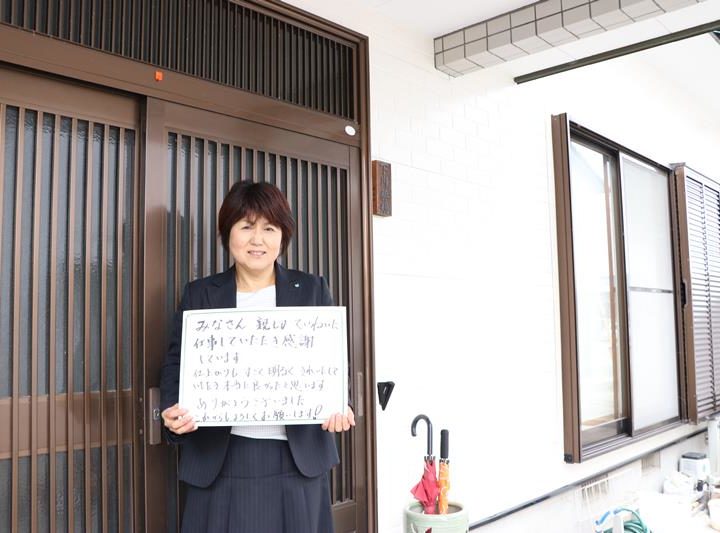 みなさん 親切 ていねいに
仕事していただき感謝
しています
仕上がりも すごく明るく きれいにして
いただき本当に良かったと思います
ありがとうございました
これからもよろしくお願いします!